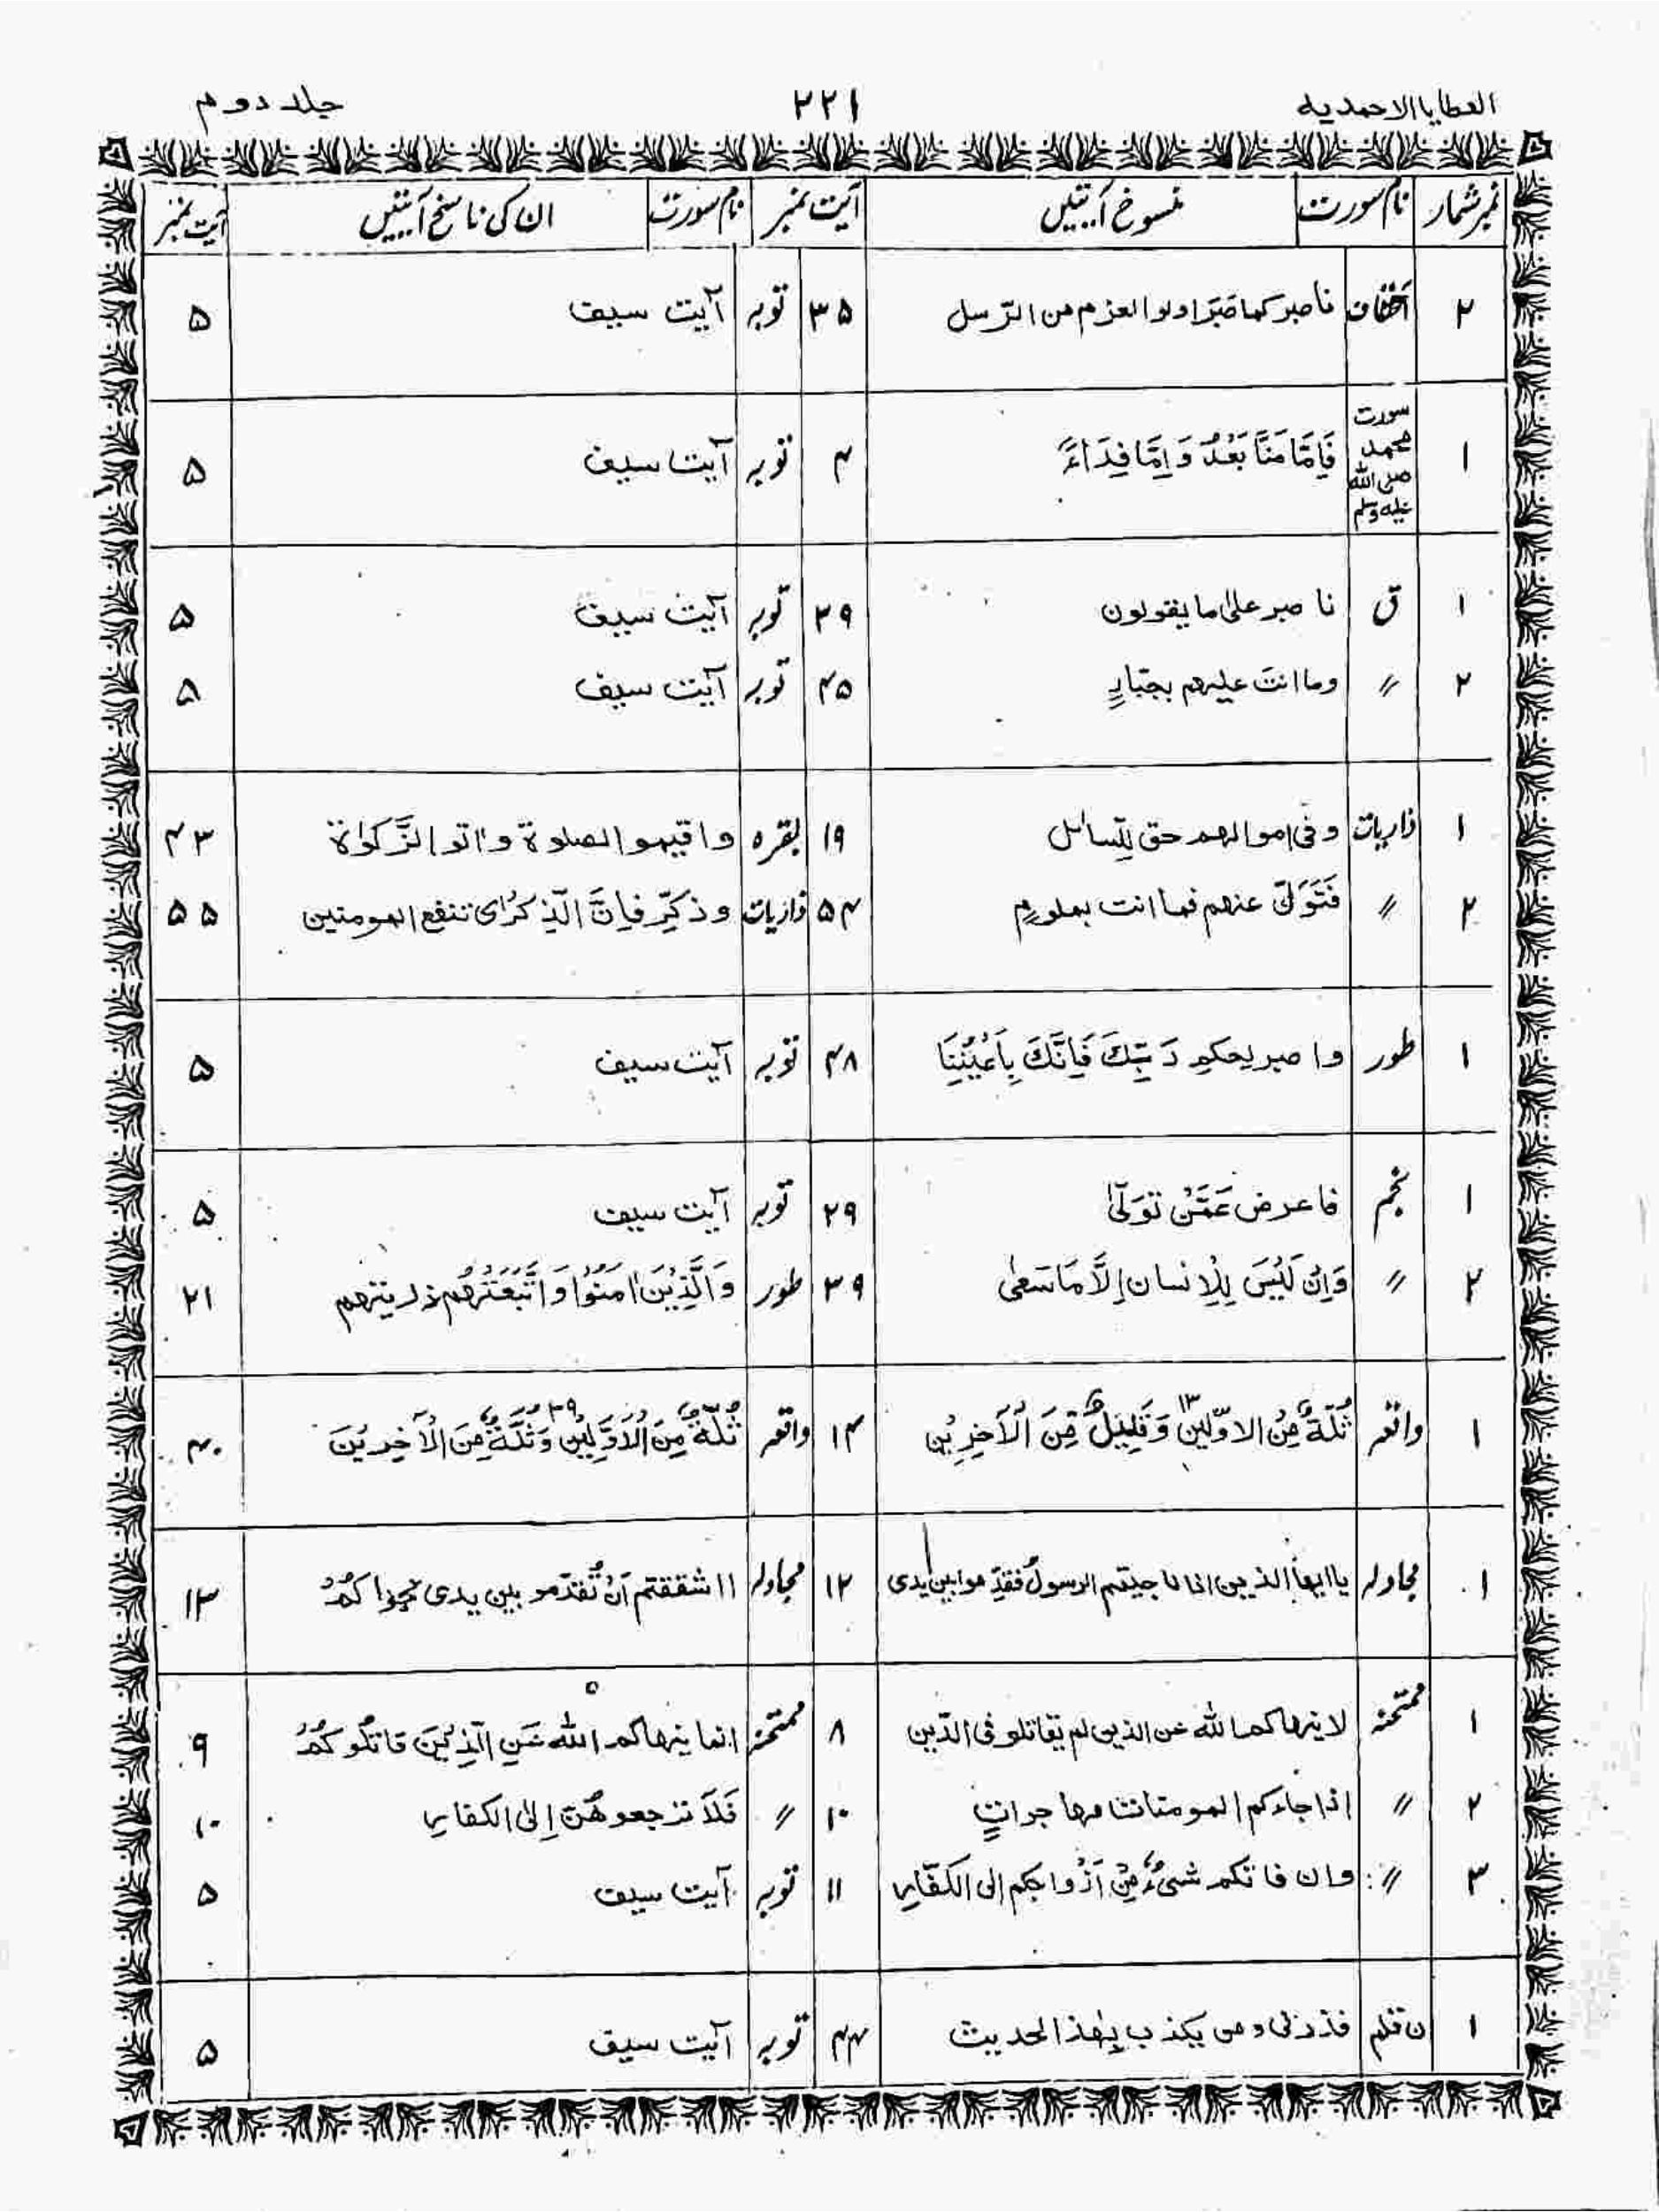 العطایا الاحمدیه ۲۲۱ جلد دوم
نمبر شمار نام سورت منسوخ آیتیں آیت نمبر نام سورت ان کی ناسخ آیتیں آیت نمبر
۲ احقاف فاصبر کما صَبَرَ اولو العزم من الرّسل ۳۵ توبہ آیت سیف ۵
سورت
محمد
صلی اللہ
علیہ وسلم
۱ فَاِمَّا مَنَّا بَعْدُ وَ اِمَّا فِدَاءً ۴ توبہ آیت سیف ۵
۱ ق فاصبر علیٰ ما یقولون ۳۹ توبہ آیت سیف ۵
۲ // وما انتَ علیهم بجبّارٍ ۴۵ توبہ آیت سیف ۵
۱ ذاریات وفی اموالهم حق لِلسائل ۱۹ بقرہ واقیمو الصلوة واٰتو الزَّکوٰة ۴۳
۲ // فَتَوَلَّ عنهم فما انت بملومٍ ۵۴ ذاریات وذکِّر فاِنَّ الّذِکرٰی تنفع المومنین ۵۵
۱ طور واصبر لِحکمِ رَبِّكَ فَاِنَّكَ بِاَعْیُنِنَا ۴۸ توبہ آیت سیف ۵
۱ نجم فاعرض عَمَّنْ تَوَلّٰی ۲۹ توبہ آیت سیف ۵
۲ // وَاِنْ لَیْسَ لِلْاِنسان اِلَّا مَا سَعٰی ۳۹ طور وَالَّذِیْنَ اٰمَنُوْا وَاتَّبَعَتْهُم ذریتهم ۲۱
۱ واقعہ ثُلّةٌ مِّنْ الاوّلِین ۱۳ وَقَلِیْلٌ مِّنَ الْاَخِرِیْن ۱۴ واقعہ ثُلّةٌ مِّنَ الْاَوَّلِیْن ۳۹ وَثُلَّةٌ مِّنَ الْاَخِرِیْنَ ۴۰
۱ مجادلہ یاایها الذین اذا ناجیتم الرسولُ فقدِّموا بین یدی ۱۲ مجادلہ ااشفقتم اَنْ تُقدّمو بین یدی نجواکُمْ ۱۳
۱ ممتحنہ لا ینهاکم اللہ عن الذین لم یقاتلو فی الدّین ۸ ممتحنہ انما ینهاکم اللہ عَنِ الّذِیْنَ قاتلُوکُمْ ۹
۲ // اذا جاءکم المومنات مهاجراتٍ ۱۰ // فَلَا ترجعوهُنَّ اِلی الکفارِ ۱۰
۳ // وان فاتکم شیءٌ مِّنْ اَزْواجکم الی الکفّارِ ۱۱ توبہ آیت سیف ۵
۱ ن قلم فذرنی ومن یکذب بِهٰذا الحدیث ۴۴ توبہ آیت سیف ۵